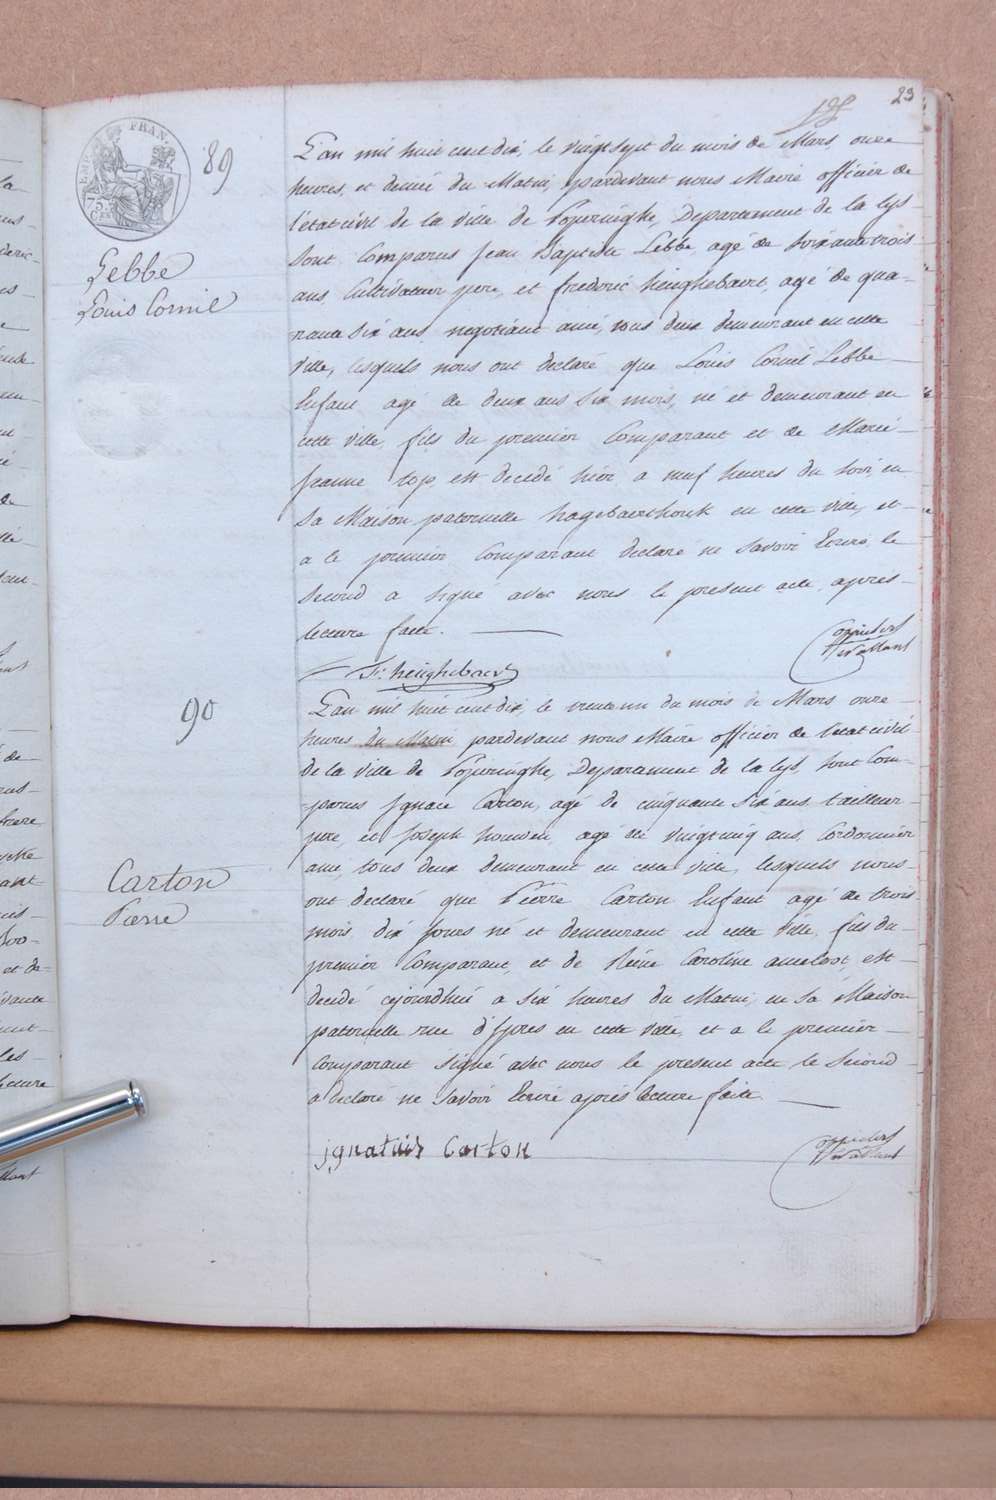 23
89
Lebbe
Louis Cornil
L'an mil huit cent dix, le vingt sept du mois de Mars, onze
heures, et demie du Matin, pardevant nous Maire officier de
l'état civil de la ville de Poperinghe, Departement de la Lys
Sont Comparus Jean Baptiste Lebbe agé de soixante trois
ans, Cultivateur pere, et frederic heughebaert, agé de qua-
rante Six ans, negotiant ami, tous deux demeurant en cette
Ville, lesquels nous ont declaré que Louis Cornil Lebbe
Enfant agé de deux ans Six mois, né et demeurant en
cette ville, fils du premier Comparant et de Marie
Jeanne top, est decedé hier a neuf heures du soir, en
Sa Maison paternelle hagebaerthouk en cette ville, et
a le premier Comparant declaré ne Savoir Ecrire le
Second a Signé avec nous le present acte, après
lecture faite.
F: heughebaert
90
Carton
Pierre
L'an mil huit cent dix, le trente un du mois de Mars onze
heures du Matin pardevant nous Maire officier de l'etat civil
de la ville de Poperinghe, Departement de la Lys, Sont Com-
parus Ignace Carton, agé de cinquante Six ans, tailleur
pere, et Joseph houwen, agé de vingt cinq ans, Cordonnier
ami, tous deux demeurant en cette ville, lesquels nous
ont declaré que Pierre Carton Enfant agé de trois
mois dix Jours né et demeurant en cette Ville, fils du
premier Comparant, et de Reine Caroline ameloot, est
decedé cejourdhui a Six heures du Matin, en Sa Maison
paternelle rue d'Ypres en cette Ville, et a le premier
Comparant Signé avec nous le present acte le Second
a declaré ne Savoir Ecrire après lecture faite.
ignatius Carton